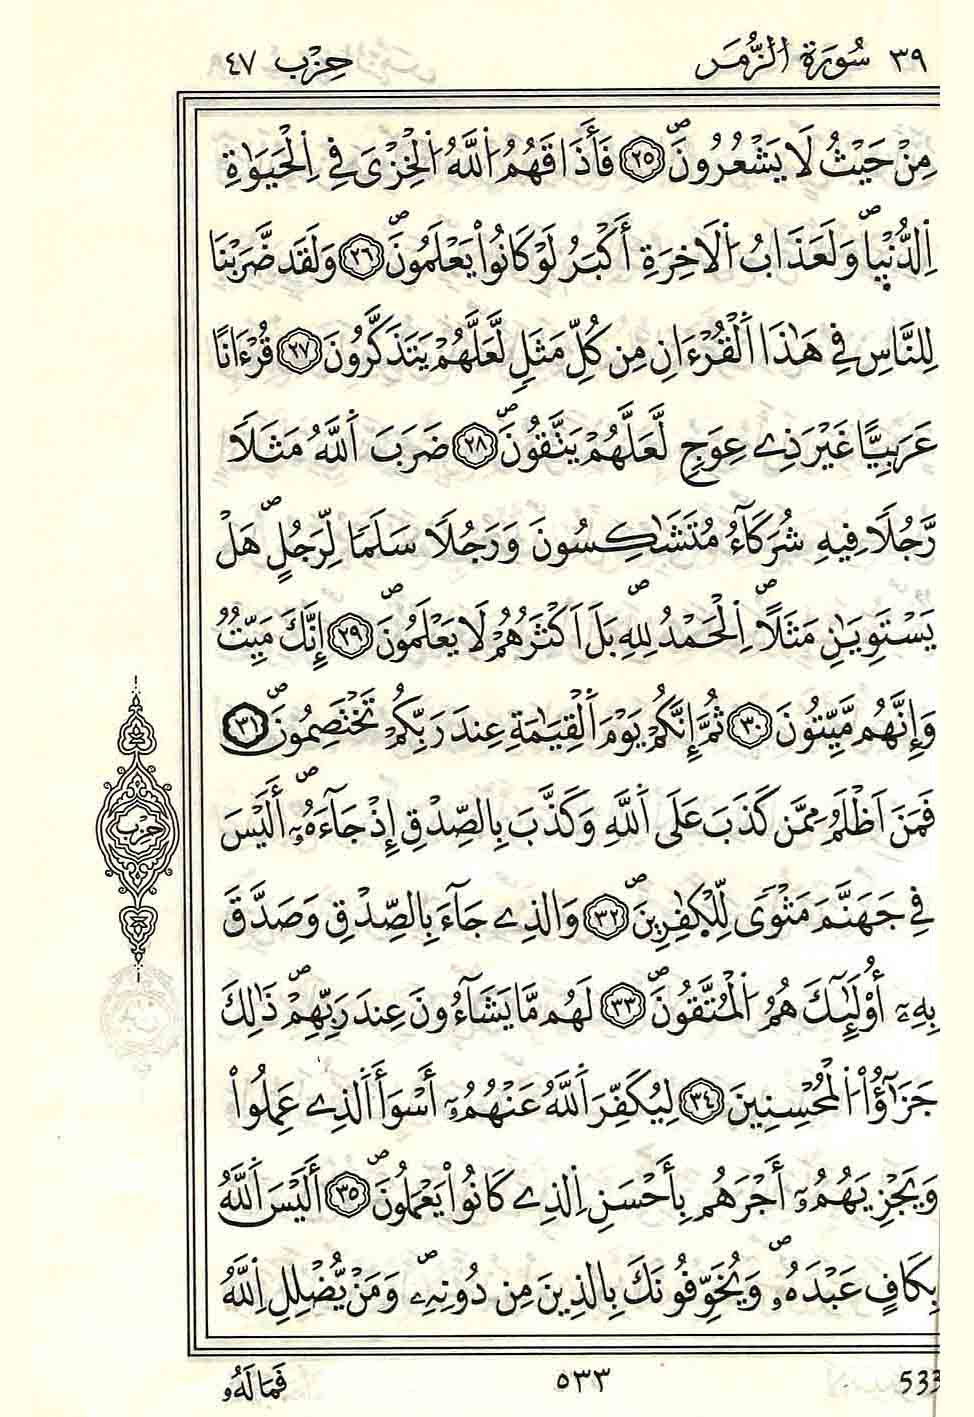 ٣٩ سُورَةُ الزُّمَرِ حِزْب ٤٧
مِنْ حَيْثُ لَا يَشْعُرُونَۖ ٢٥ فَأَذَاقَهُمُ اُ۬للَّهُ اُ۬لْخِزْيَ فِے اِ۬لْحَيَوٰةِ
اِ۬لدُّنْي۪اۖ وَلَعَذَابُ اُ۬لَاخِرَةِ أَكْبَرُ لَوْ كَانُواْ يَعْلَمُونَۖ ٢٦ وَلَقَد ضَّرَبْنَا
لِلنَّاسِ فِے هَٰذَا اَ۬لْقُرْءَانِ مِن كُلِّ مَثَلٖ لَّعَلَّهُمْ يَتَذَكَّرُونَ ٢٧ قُرْءَاناً
عَرَبِيّاً غَيْرَ ذِے عِوَجٖ لَّعَلَّهُمْ يَتَّقُونَۖ ٢٨ ضَرَبَ اَ۬للَّهُ مَثَلٗا
رَّجُلٗا فِيهِ شُرَكَآءُ مُتَشَٰكِسُونَ وَرَجُلٗا سَلَمٗا لِّرَجُلٍۖ هَلْ
يَسْتَوِيَٰنِ مَثَلًاۖ اِ۬لْحَمْدُ لِلهِۖ بَلَ اَكْثَرُهُمْ لَا يَعْلَمُونَۖ ٢٩ إِنَّكَ مَيِّتٞ
وَإِنَّهُم مَّيِّتُونَ ٣٠ ثُمَّ إِنَّكُمْ يَوْمَ اَ۬لْقِيَٰمَةِ عِندَ رَبِّكُمْ تَخْتَصِمُونَۖ ٣١
فَمَنَ اَظْلَمُ مِمَّن كَذَبَ عَلَى اَ۬للَّهِ وَكَذَّبَ بِالصِّدْقِ إِذْ جَآءَهُۥٓۖ أَلَيْسَ
حِزْب
فِے جَهَنَّمَ مَثْوٗى لِّلْكٰ۪فِرِينَۖ ٣٢ وَالذِے جَآءَ بِالصِّدْقِ وَصَدَّقَ
بِهِۦٓ أُوْلَٰٓئِكَ هُمُ اُ۬لْمُتَّقُونَۖ ٣٣ لَهُم مَّا يَشَآءُونَ عِندَ رَبِّهِمْۖ ذَٰلِكَ
جَزَٰٓؤُاْ اُ۬لْمُحْسِنِينَ ٣٤ لِيُكَفِّرَ اَ۬للَّهُ عَنْهُمُۥٓ أَسْوَأَ اَ۬لذِے عَمِلُواْ
وَيَجْزِيَهُمُۥٓ أَجْرَهُم بِأَحْسَنِ اِ۬لذِے كَانُواْ يَعْمَلُونَۖ ٣٥ أَلَيْسَ اَ۬للَّهُ
بِكَافٍ عَبْدَهُۥۖ وَيُخَوِّفُونَكَ بِالذِينَ مِن دُونِهِۦۖ وَمَنْ يُّضْلِلِ اِ۬للَّهُ
فَمَا لَهُۥ
٥٣٣
533